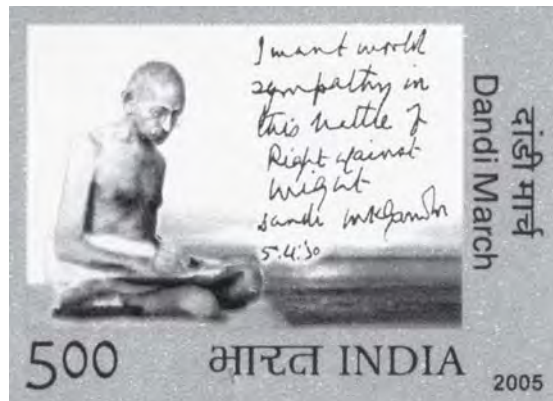 I want world
sympathy in
this battle of
Right against
might
Dandi MKGandhi
5.4.30
दांडी मार्च
Dandi March
500 भारत INDIA
2005